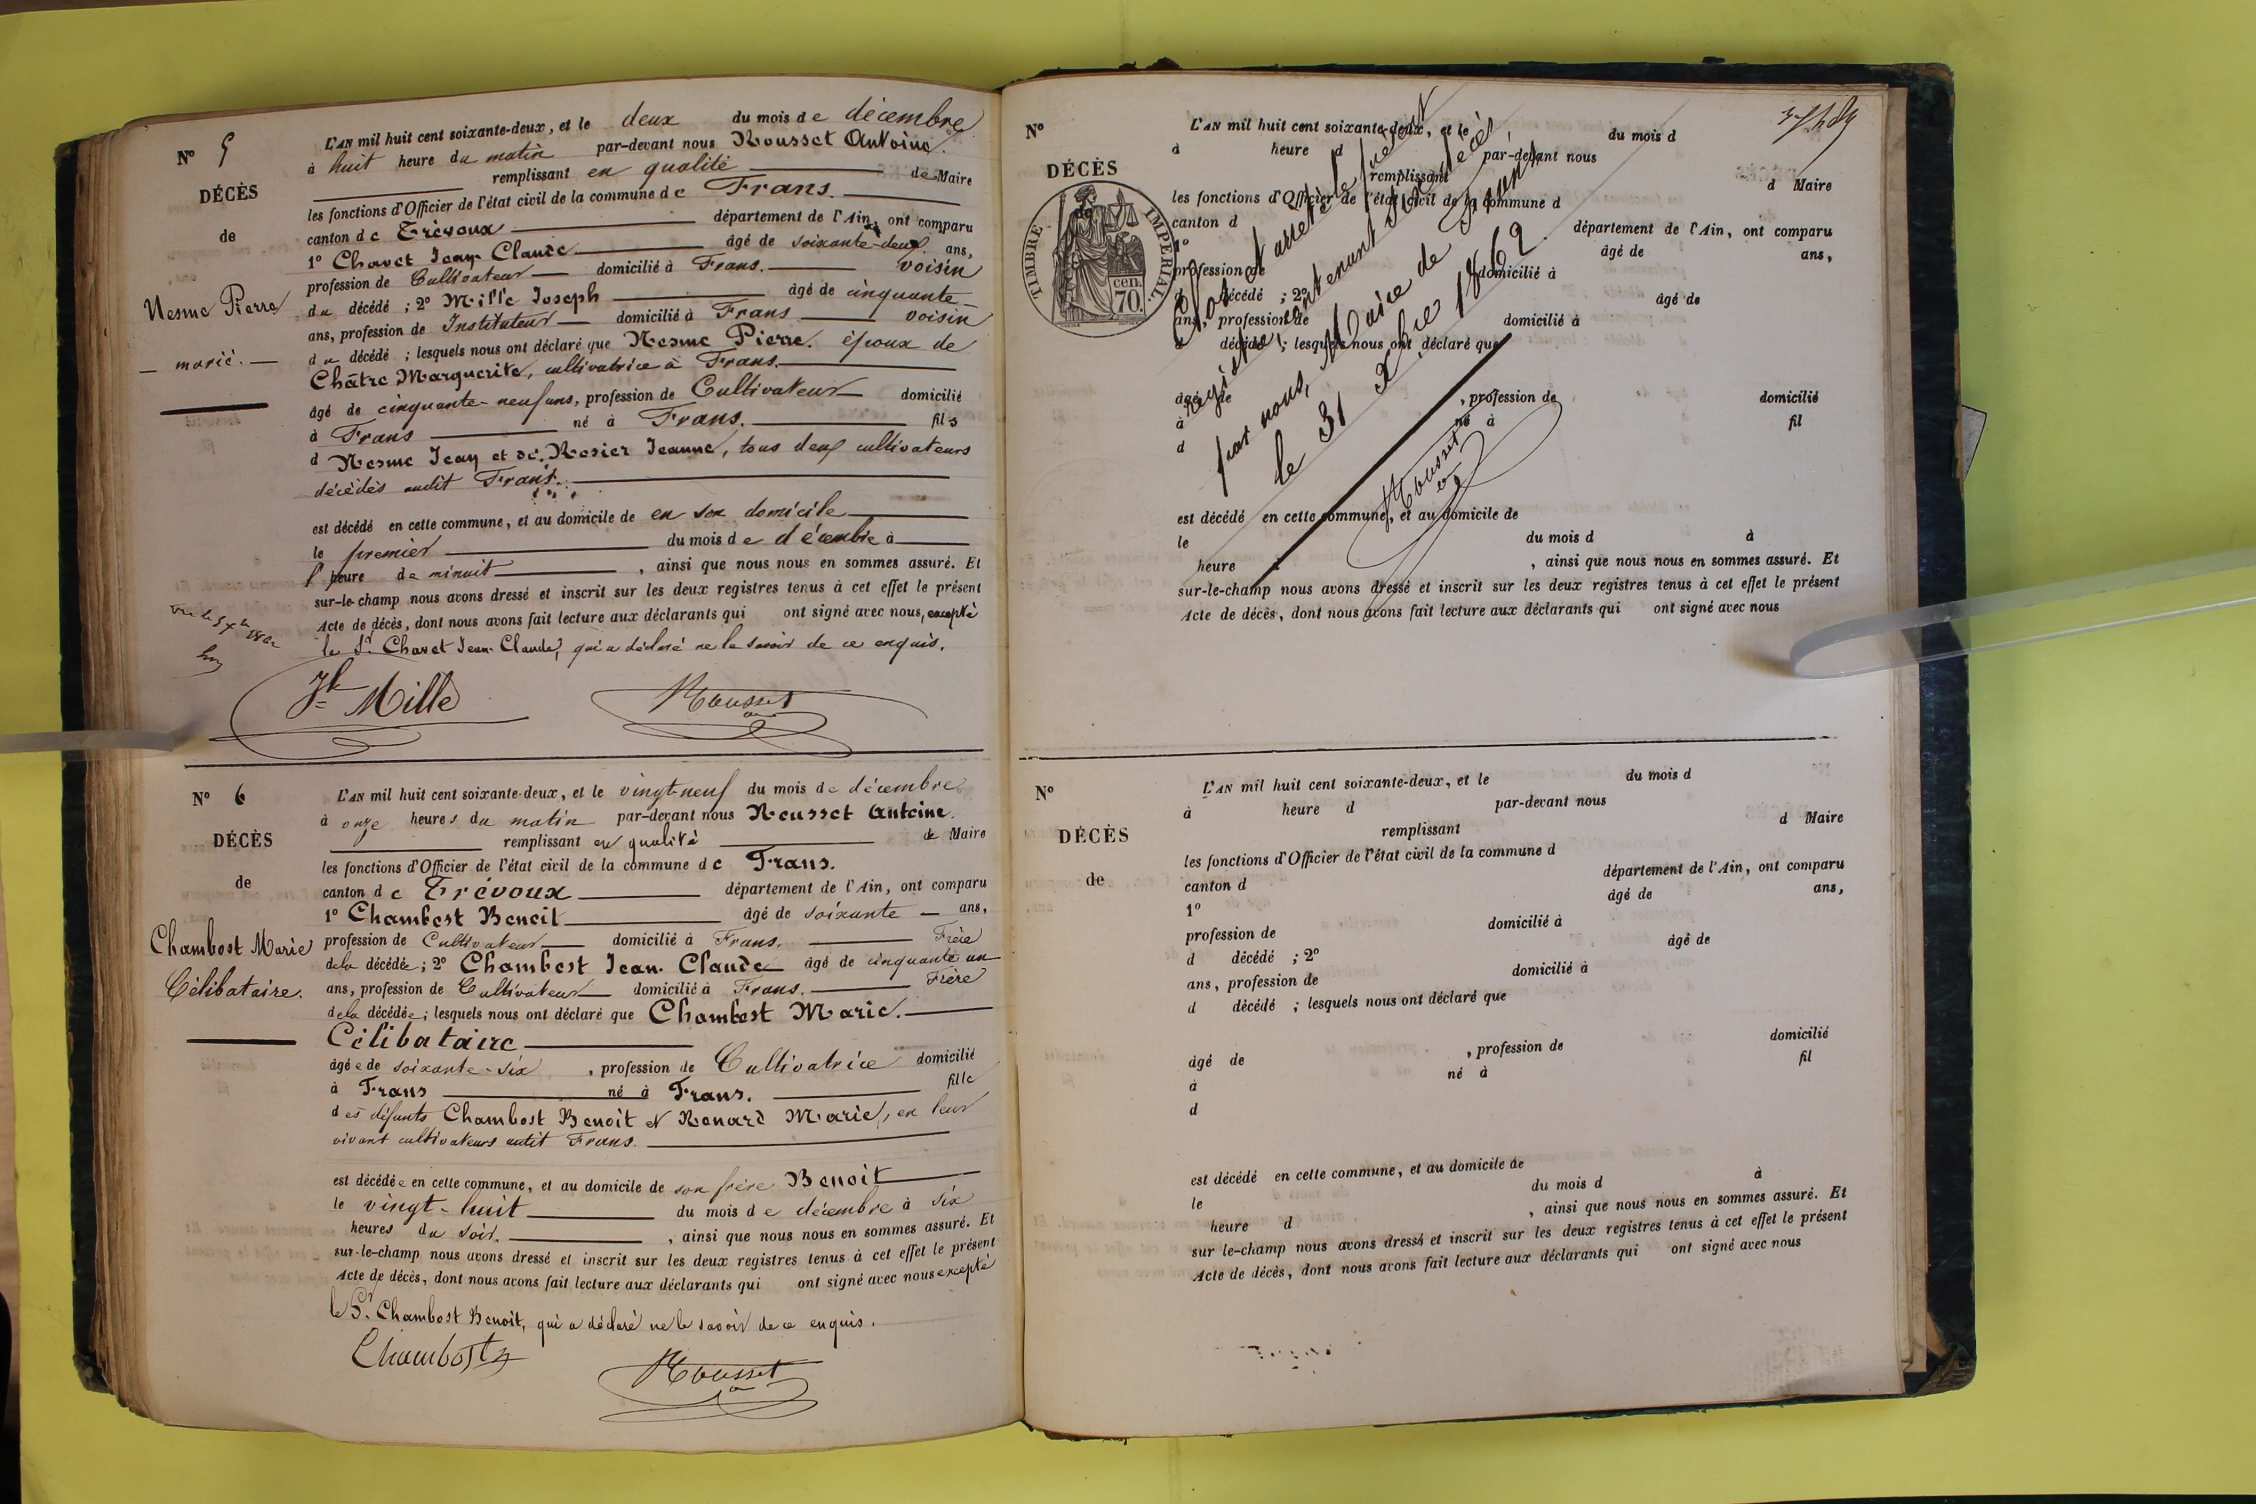 N° 5
DÉCÈS
de
Nesme Pierre
marié.
L'AN mil huit cent soixante-deux, et le deux du mois de décembre
à huit heure du matin par-devant nous Rousset Antoine.
remplissant en qualité de Maire
les fonctions d'Officier de l'état civil de la commune de Frans.
canton de Trévoux département de l'Ain, ont comparu
1° Chavet Jean-Claude âgé de soixante-deux ans,
profession de Cultivateur domicilié à Frans. voisin
du décédé ; 2° Mille Joseph âgé de cinquante
ans, profession de Instituteur domicilié à Frans voisin
du décédé ; lesquels nous ont déclaré que Nesme Pierre. époux de
Châtre Marguerite, cultivatrice à Frans.
âgé de cinquante-neuf ans, profession de Cultivateur domicilié
à Frans né à Frans. fils
d Nesme Jean et de Rosier Jeanne, tous deux cultivateurs
décédés audit Frans.
est décédé en cette commune, et au domicile de en son domicile
le premier du mois de décembre à
l'heure de minuit , ainsi que nous nous en sommes assuré. Et
sur-le-champ nous avons dressé et inscrit sur les deux registres tenus à cet effet le présent
Acte de décès, dont nous avons fait lecture aux déclarants qui ont signé avec nous, excepté
le Sr. Chavet Jean-Claude, qui a déclaré ne le savoir de ce enquis.
Jh Mille Rousset
N° 6
DÉCÈS
de
Chambost Marie
Célibataire.
L'AN mil huit cent soixante-deux, et le vingt-neuf du mois de décembre
à onze heures du matin par-devant nous Rousset Antoine.
remplissant en qualité de Maire
les fonctions d'Officier de l'état civil de la commune de Frans.
canton de Trévoux département de l'Ain, ont comparu
1° Chambost Benoit âgé de soixante ans,
profession de Cultivateur domicilié à Frans. Frère
de la décédée ; 2° Chambost Jean-Claude âgé de cinquante un
ans, profession de Cultivateur domicilié à Frans. Frère
de la décédée ; lesquels nous ont déclaré que Chambost Marie.
Célibataire
âgée de soixante-six , profession de Cultivatrice domicilié
à Frans né à Frans. fille
des défunts Chambost Benoit et Renard Marie, en leur
vivant cultivateurs audit Frans.
est décédée en cette commune, et au domicile de son frère Benoit
le vingt-huit du mois de décembre à six
heures du soir. , ainsi que nous nous en sommes assuré. Et
sur-le-champ nous avons dressé et inscrit sur les deux registres tenus à cet effet le présent
Acte de décès, dont nous avons fait lecture aux déclarants qui ont signé avec nous excepté
le Sr. Chambost Benoit, qui a déclaré ne le savoir de ce enquis.
Chambost Rousset
N°
DÉCÈS
de
TIMBRE IMPÉRIAL.
70 cen.
L'AN mil huit cent soixante-deux, et le du mois d
à heure d par-devant nous
remplissant d Maire
les fonctions d'Officier de l'état civil de la commune d
canton d département de l'Ain, ont comparu
1° âgé de ans,
profession de domicilié à
d décédé ; 2° âgé de
ans, profession de domicilié à
d décédé ; lesquels nous ont déclaré que
âgé de , profession de domicilié
à né à fil
d
est décédé en cette commune, et au domicile de
le du mois d à
heure d , ainsi que nous nous en sommes assuré. Et
sur-le-champ nous avons dressé et inscrit sur les deux registres tenus à cet effet le présent
Acte de décès, dont nous avons fait lecture aux déclarants qui ont signé avec nous
Clos et arrêté le présent
registre contenant six décès,
par nous, Maire de Frans,
le 31 Xbre 1862.
Rousset
N°
DÉCÈS
de
L'AN mil huit cent soixante-deux, et le du mois d
à heure d par-devant nous
remplissant d Maire
les fonctions d'Officier de l'état civil de la commune d
canton d département de l'Ain, ont comparu
1° âgé de ans,
profession de domicilié à
d décédé ; 2° âgé de
ans, profession de domicilié à
d décédé ; lesquels nous ont déclaré que
âgé de , profession de domicilié
à né à fil
d
est décédé en cette commune, et au domicile de
le du mois d à
heure d , ainsi que nous nous en sommes assuré. Et
sur le-champ nous avons dressé et inscrit sur les deux registres tenus à cet effet le présent
Acte de décès, dont nous avons fait lecture aux déclarants qui ont signé avec nous